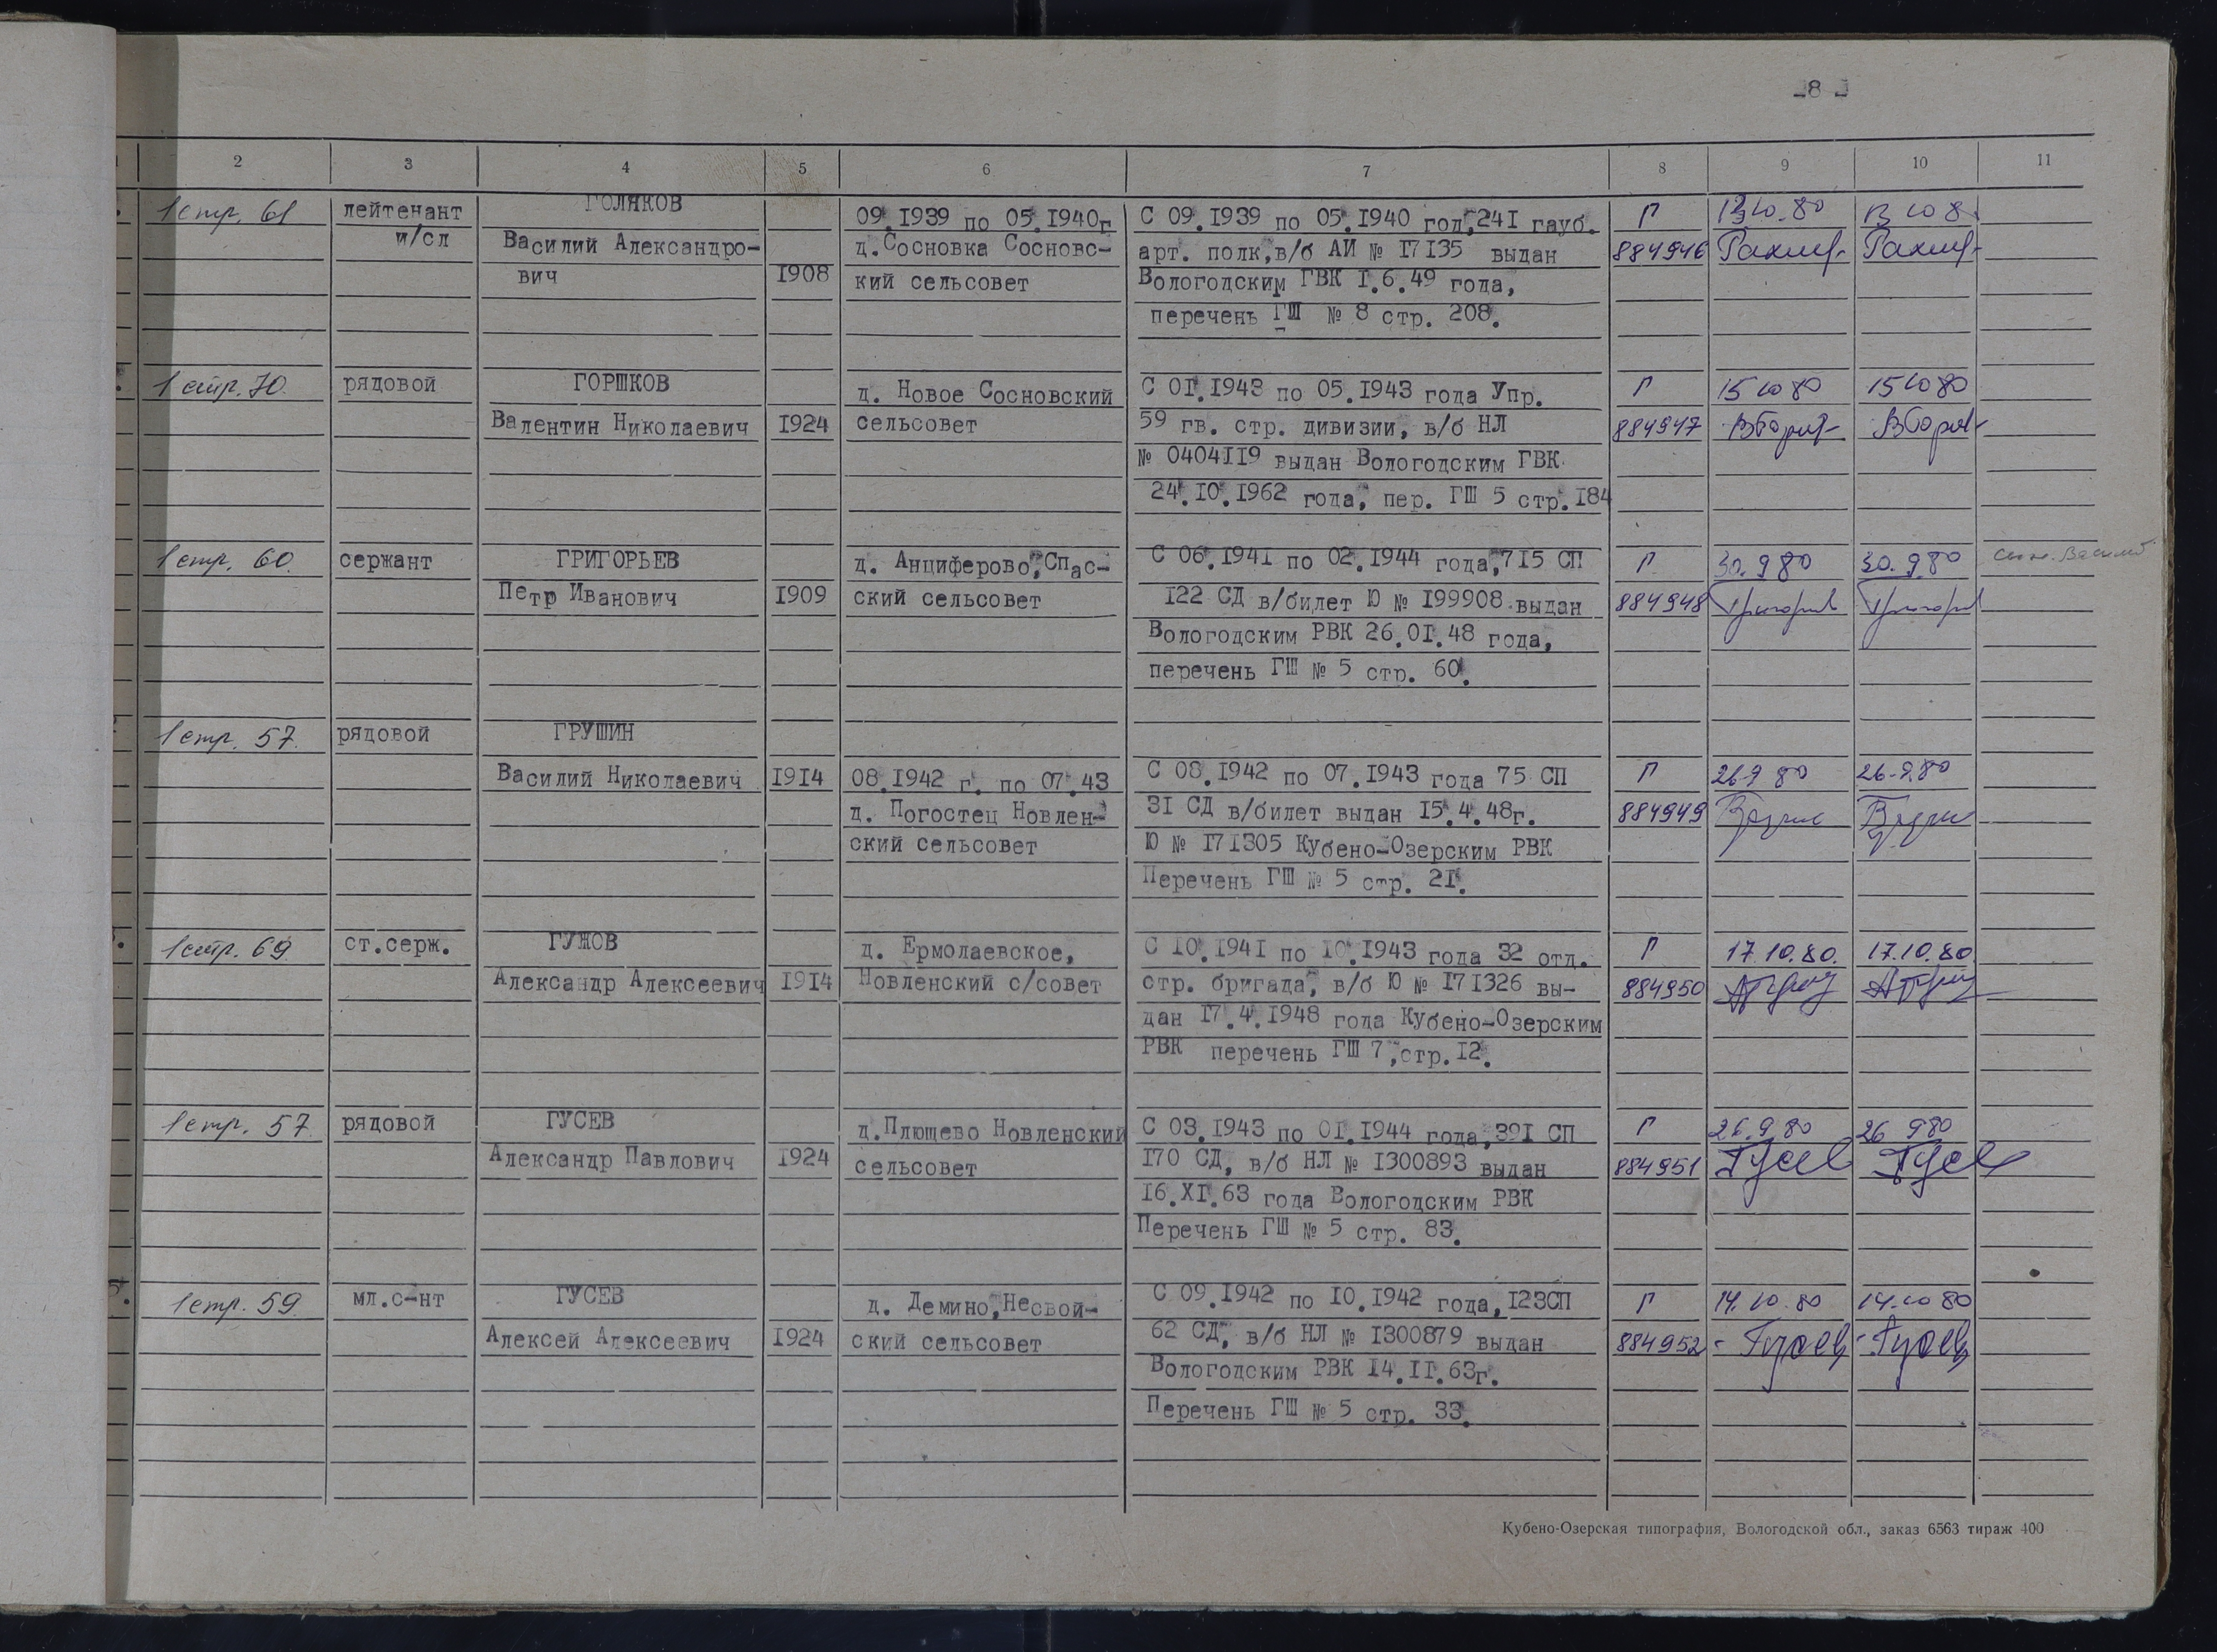 2 3 4 5 6 7 8 9 10 11
1 стр. 61 лейтенант ГОЛЯКОВ 09.1939 по 05.1940г С 09.1939 по 05.1940 год, 241 гауб. Г 13.10.80 13 10 8
и/сл Василий Александро- д.Сосновка Сосновс- арт. полк, в/б АИ № 17135 выдан 884946
вич 1908 кий сельсовет Вологодским ГВК 1.6.49 года,
перечень ГШ № 8 стр. 208.
1 стр. 70. рядовой ГОРШКОВ д. Новое Сосновский С 01.1943 по 05.1943 года Упр. Г 15 10 80 15 10 80
Валентин Николаевич 1924 сельсовет 59 гв. стр. дивизии, в/б НЛ 884947
№ 0404119 выдан Вологодским ГВК
24.10.1962 года, пер. ГШ 5 стр.184
1 стр. 60. сержант ГРИГОРЬЕВ д. Анциферово, Спас- С 06.1941 по 02.1944 года, 715 СП Г 30.9 80 30.9.80
Петр Иванович 1909 ский сельсовет 122 СД в/билет Ю № 199908 выдан 884948
Вологодским РВК 26.01.48 года,
перечень ГШ № 5 стр. 60.
1 стр. 57. рядовой ГРУШИН
Василий Николаевич 1914 08.1942 г. по 07.43 С 08.1942 по 07.1943 года 75 СП Г 26 9 80 26.9.80
д. Погостец Новлен- 31 СД в/билет выдан 15.4.48г. 884949
ский сельсовет Ю № 171305 Кубено-Озерским РВК
Перечень ГШ № 5 стр. 21.
1 стр. 69 ст.серж. ГУЖОВ д. Ермолаевское, С 10.1941 по 10.1943 года 32 отд. Г 17.10.80. 17.10.80.
Александр Алексеевич 1914 Новленский с/совет стр. бригада, в/б Ю № 171326 вы- 884950
дан 17.4.1948 года Кубено-Озерским
РВК перечень ГШ 7, стр.12.
1 стр. 57. рядовой ГУСЕВ д.Плющево Новленский С 03.1943 по 01.1944 года, 391 СП Г 26.9 80 26 9 80
Александр Павлович 1924 сельсовет 170 СД, в/б НЛ № 1300893 выдан 884951 Гусев Гусев
16.XI.63 года Вологодским РВК
Перечень ГШ № 5 стр. 83.
1 стр. 59. мл.с-нт ГУСЕВ д. Демино, Несвой- С 09.1942 по 10.1942 года, 123СП Г 14.10.80 14.10 80
Алексей Алексеевич 1924 ский сельсовет 62 СД, в/б НЛ № 1300879 выдан 884952 Гусев Гусев
Вологодским РВК 14.11.63г.
Перечень ГШ № 5 стр. 33.
Кубено-Озерская типография, Вологодской обл., заказ 6563 тираж 400